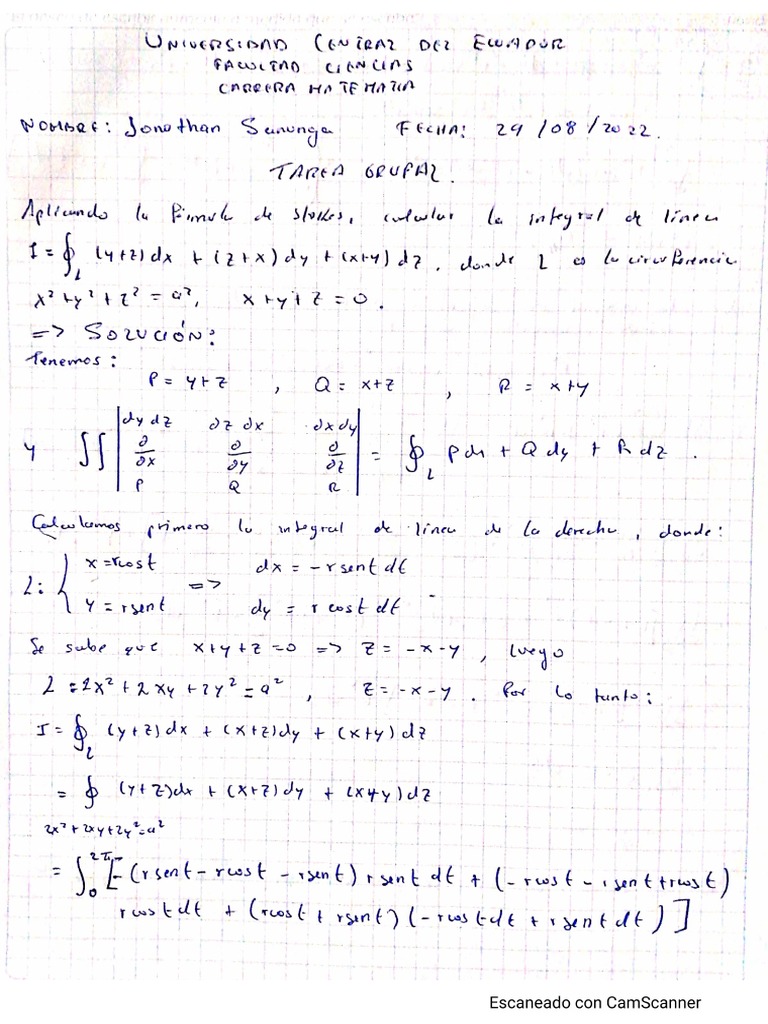 UNIVERSIDAD CENTRAL DEL ECUADOR
FACULTAD CIENCIAS
CARRERA MATEMATICA
NOMBRE: Jonathan Sununga FECHA: 29/08/2022.
TAREA GRUPAL.
Aplicando la fórmula de stokes, calcular la integral de línea
I = ∮_L (y+z)dx + (z+x)dy + (x+y)dz, donde L es la circunferencia
x² + y² + z² = a², x+y+z = 0.
=> SOLUCIÓN:
Tenemos:
P = y+z , Q = x+z , R = x+y
y ∬ | dy dz ∂z ∂x ∂x dy |
| ∂/∂x ∂/∂y ∂/∂z | = ∮_L Pdx + Qdy + Rdz .
| P Q R |
Calculamos primero la integral de línea de la derecha, donde:
L: { x = rcost => dx = -r sent dt
y = rsent dy = r cost dt
Se sabe que x+y+z=0 => z = -x-y , luego
L = 2x² + 2xy + 2y² = a² , z = -x-y . Por lo tanto:
I = ∮_L (y+z)dx + (x+z)dy + (x+y)dz
= ∮ (y+z)dx + (x+z)dy + (x+y)dz
2x²+2xy+2y²=a²
= ∫_0^{2π} [-(rsent - rcost - rsent) rsent dt + (-rcost - rsent + rcost)
rcost dt + (rcost + rsent)(-rcost dt + rsent dt)]
Escaneado con CamScanner